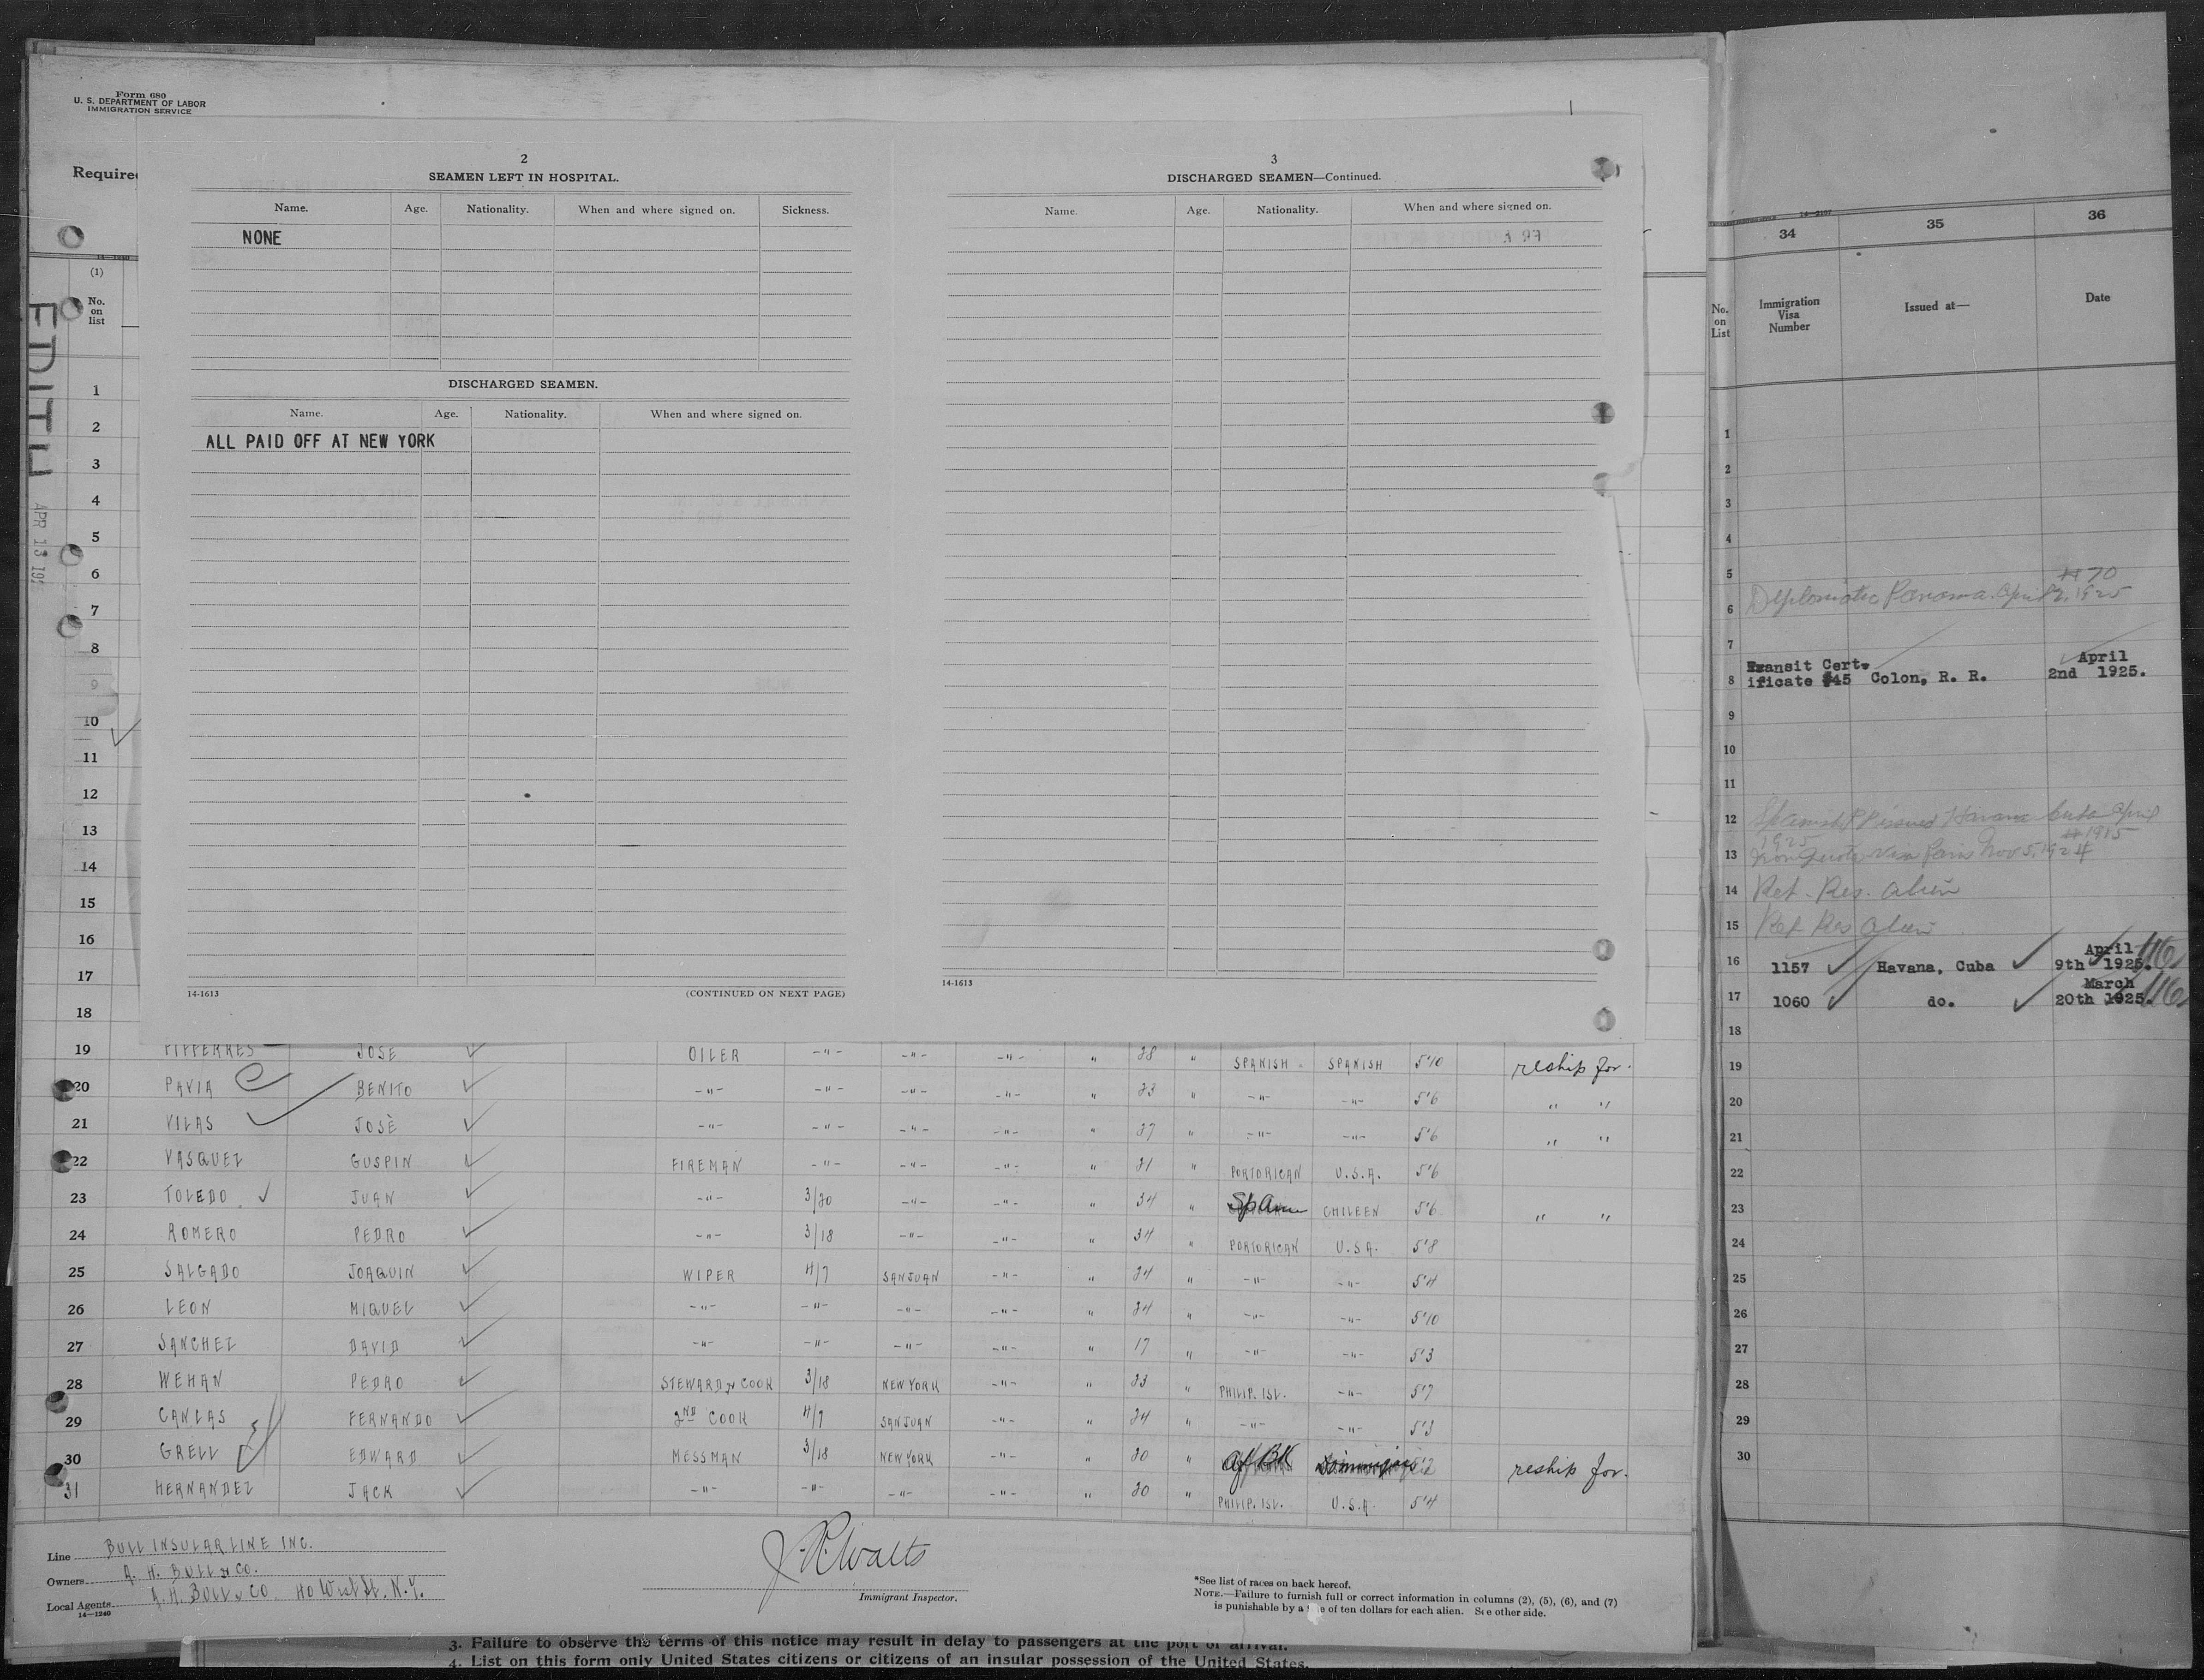 Form 680
U. S. DEPARTMENT OF LABOR
IMMIGRATION SERVICE
Require
(1)
No.
on
list
EDITH
APR 13 19
1
2
3
4
5
6
7
8
9
10
11
12
13
14
15
16
17
18
2
SEAMEN LEFT IN HOSPITAL.
Name. Age. Nationality. When and where signed on. Sickness.
NONE
DISCHARGED SEAMEN.
Name. Age. Nationality. When and where signed on.
ALL PAID OFF AT NEW YORK
14-1613 (CONTINUED ON NEXT PAGE)
3
DISCHARGED SEAMEN—Continued.
Name. Age. Nationality. When and where signed on.
14-1613
19 PIFFERRES JOSE OILER -"- -"- -"- " 28 " SPANISH SPANISH 5'10 reship for.
20 PAVIA BENITO -"- -"- -"- -"- " 23 " -"- -"- 5'6 " "
21 VILAS JOSÈ -"- -"- -"- -"- " 27 " -"- -"- 5'6 " "
22 VASQUEZ GUSPIN FIREMAN -"- -"- -"- " 21 " PORTORICAN U.S.A. 5'6
23 TOLEDO JUAN -"- 3/20 -"- -"- " 34 " Span CHILEEN 5'6 " "
24 ROMERO PEDRO -"- 3/18 -"- -"- " 34 " PORTORICAN U.S.A. 5'8
25 SALGADO JOAQUIN WIPER 4/7 SANJUAN -"- " 24 " -"- -"- 5'4
26 LEON MIQUEL -"- -"- -"- -"- " 24 " -"- -"- 5'10
27 SANCHEZ DAVID -"- -"- -"- -"- " 17 " -"- -"- 5'3
28 WEHAN PEDRO STEWARD & COOK 3/18 NEW YORK -"- " 23 " PHILIP. ISL. -"- 5'7
29 CANLAS FERNANDO 2ND COOK 4/7 SANJUAN -"- " 24 " -"- -"- 5'3
30 GRELL EDWARD MESSMAN 3/18 NEW YORK -"- " 20 " Af Bk reship for.
31 HERNANDEZ JACK -"- -"- -"- -"- " 20 " PHILIP. ISL. U.S.A. 5'4
Line BULL INSULAR LINE INC.
Owners A. H. BULL & CO.
Local Agents A. H. BULL & CO. 40 West St. N.Y.
14—1240
Immigrant Inspector.
*See list of races on back hereof.
NOTE.—Failure to furnish full or correct information in columns (2), (5), (6), and (7)
is punishable by a fine of ten dollars for each alien. See other side.
3. Failure to observe the terms of this notice may result in delay to passengers at the port of arrival.
4. List on this form only United States citizens or citizens of an insular possession of the United States.
34 35 36
No.
on
List
Immigration
Visa
Number
Issued at—
Date
1
2
3
4
5 # 70
6 Diplomatic Panama April 2, 1925
7
8 Transit Cert-
ificate #45 Colon, R. R. April
2nd 1925.
9
10
11
12 Havana Cuba April
1925
13 Non Quota Visa Paris Nov 5, 1924
14 Ret. Res. Alien
15 Ret Res Alien
16 1157 Havana, Cuba April
9th 1925.
17 1060 do. March
20th 1925.
18
19
20
21
22
23
24
25
26
27
28
29
30